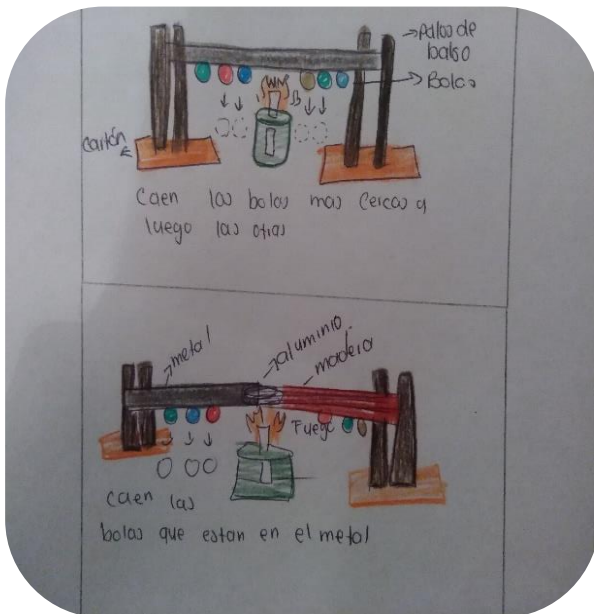 palos de
balso
Bolas
cartón
Caen las bolas mas cercas a
luego las otras
metal
aluminio.
madera
Fuego
caen las
bolas que estan en el metal